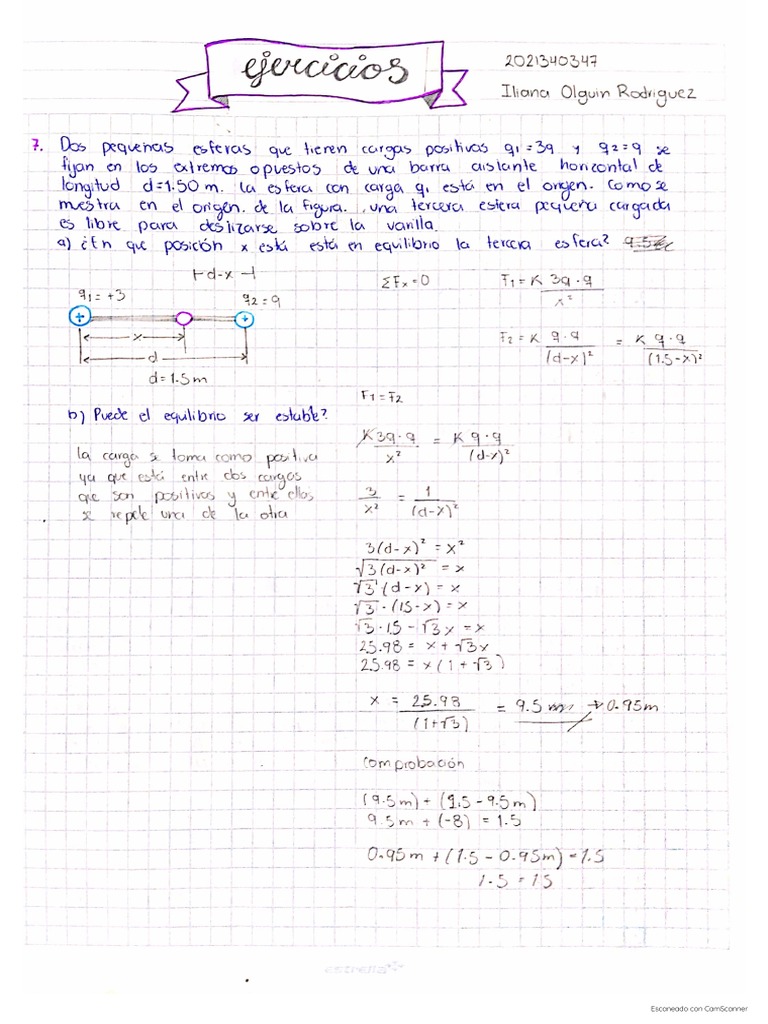 ejercicios
2021340347
Iliana Olguin Rodriguez
7. Dos pequeñas esferas que tienen cargas positivas q1=3q y q2=q se
fijan en los extremos opuestos de una barra aislante horizontal de
longitud d=1.50 m. La esfera con carga q1 está en el origen. Como se
muestra en el origen. de la figura. una tercera esfera pequeña cargada
es libre para deslizarse sobre la varilla.
a) ¿En que posición x está está en equilibrio la tercera esfera? 9.5
⊢ d-x ⊣
q1 = +3
q2 = q
+
+
x
d
d = 1.5 m
ΣFx = 0
F1 = K 3q·q / x²
F2 = K q·q / (d-x)² = K q·q / (1.5-x)²
F1 = F2
b) Puede el equlibrio ser estable?
La carga se toma como positiva
ya que está entre dos cargos
que son positivos y entre ellos
se repele una de la otra
K 3q·q / x² = K q·q / (d-x)²
3 / x² = 1 / (d-x)²
3(d-x)² = x²
√3(d-x)² = x
√3 (d-x) = x
√3 · (15-x) = x
√3 · 15 - √3x = x
25.98 = x + √3x
25.98 = x (1 + √3)
x = 25.98 / (1+√3) = 9.5 m → 0.95m
Comprobación
(9.5m) + (1.5 - 9.5m)
9.5m + (-8) = 1.5
0.95m + (1.5 - 0.95m) = 1.5
1.5 = 15
estrella
Escaneado con CamScanner